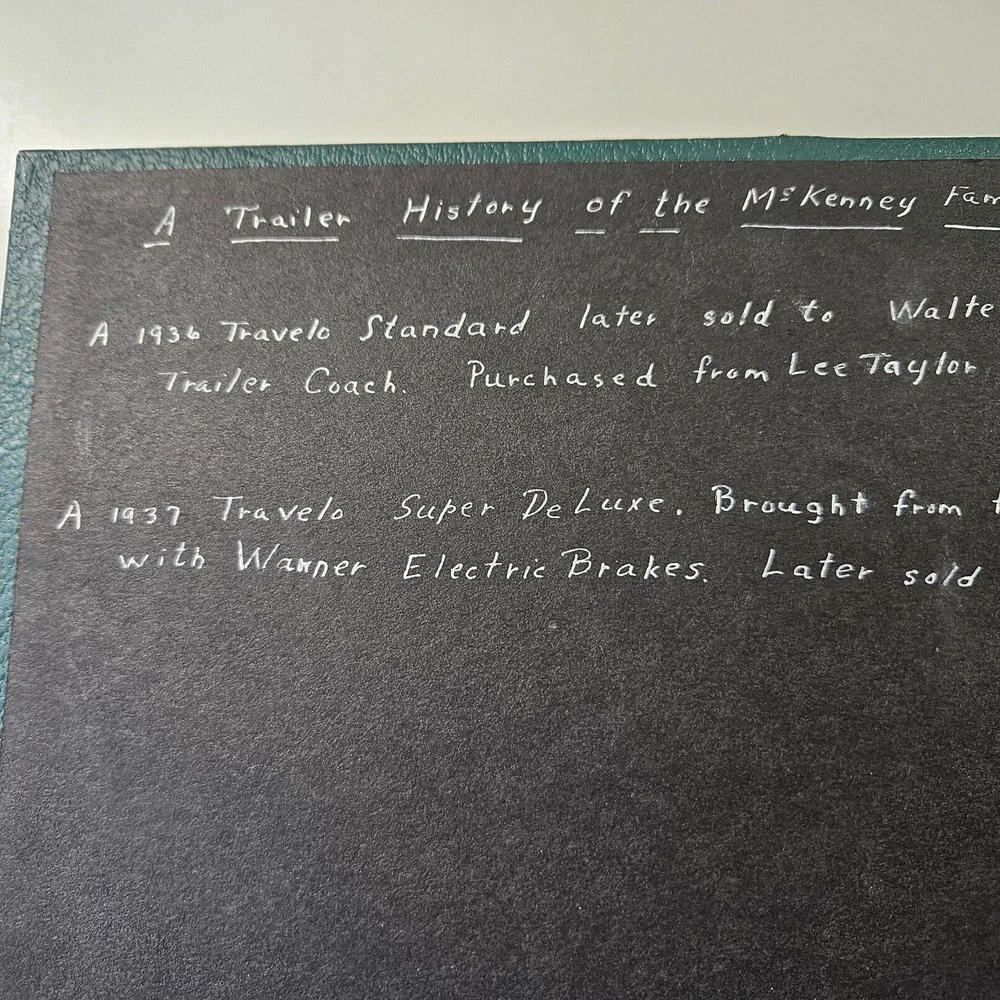 A Trailer History of the McKenney Fam
A 1936 Travelo Standard later sold to Walte
Trailer Coach. Purchased from Lee Taylor
A 1937 Travelo Super DeLuxe. Brought from t
with Warner Electric Brakes. Later sold